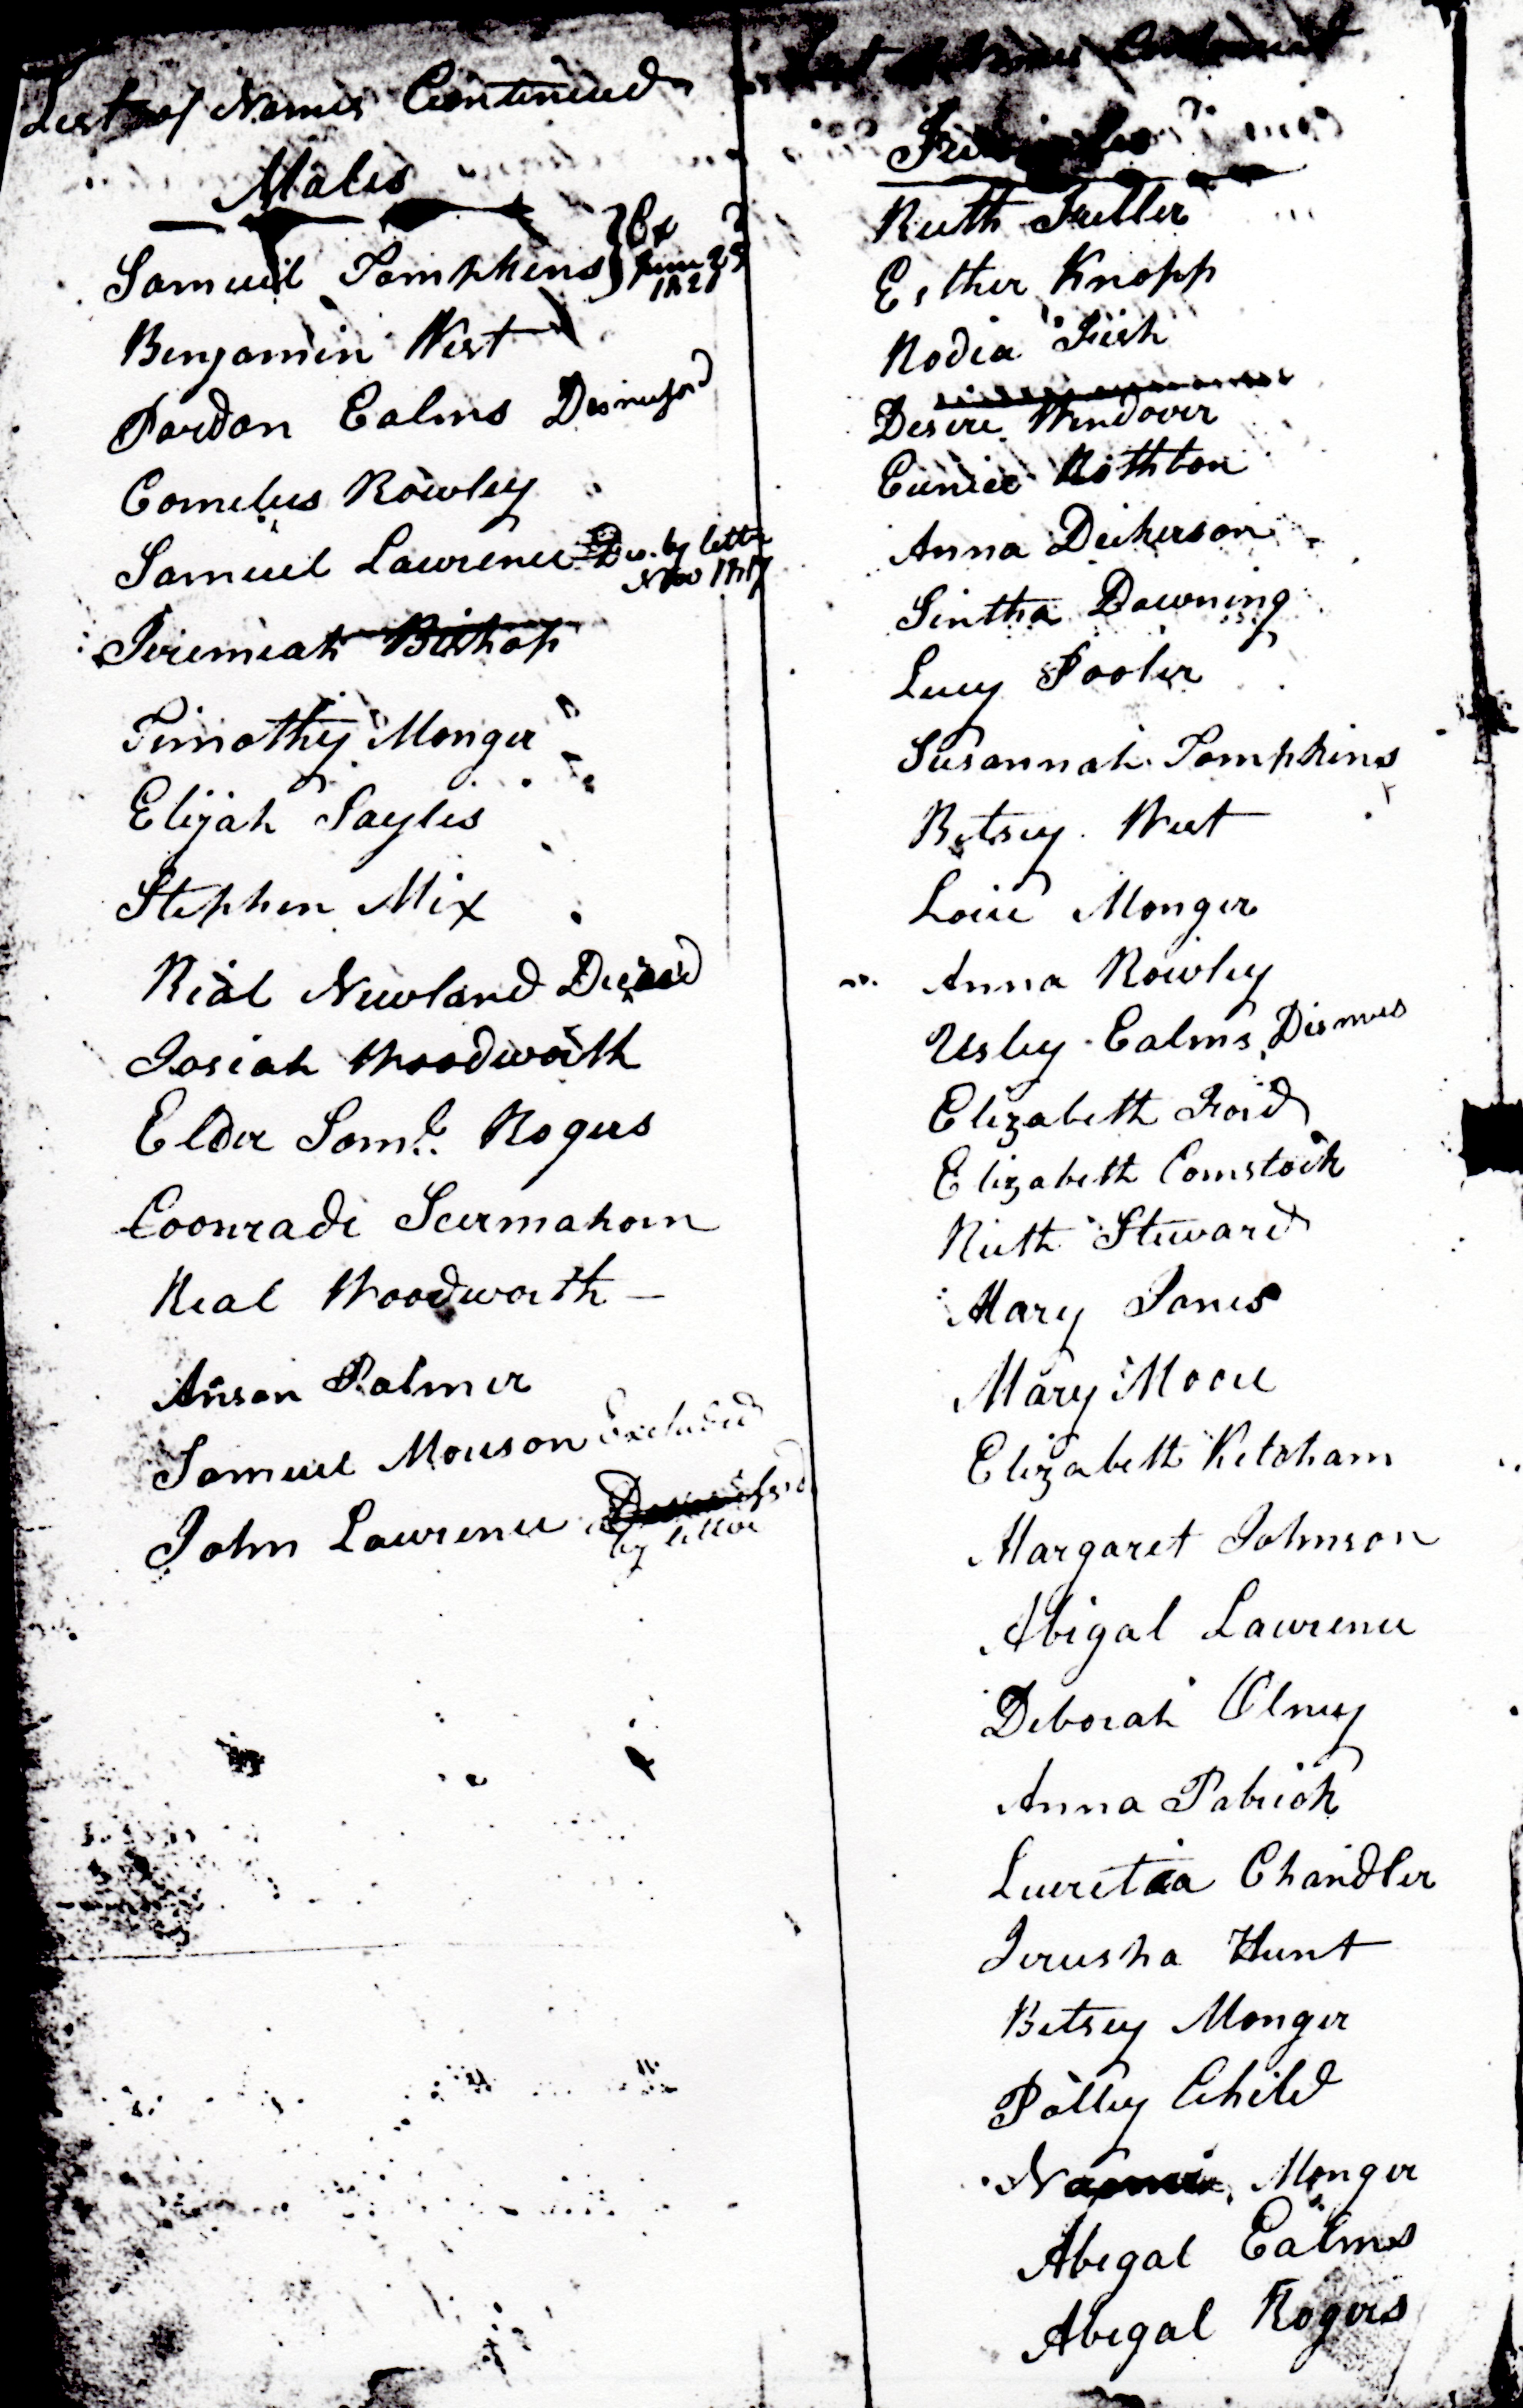 List of Names Continued
Males
Samuel Tomphins } Ex June 25 1821
Benjamin West
Pardon Ealms Dismissd
Cornelius Rowley
Samuel Lawrence Dis. by letter Nov 1817
Jeremiah Bishop
Timothy Monger
Elijah Sayles
Stephen Mix
Rial Newland Decasd
Josiah Woodworth
Elder Saml. Rogers
Coonrade Scermahorn
Real Woodworth —
Anson Palmer
Samuel Monson Excluded
John Lawrence Dismissd
by letter
Females
Ruth Fuller
Esther Knapp
Rodia Fish
Desire Wendover
Eunice Rothbon
Anna Dickerson
Sintha Downing
Lucy Pooler
Susannah Tomphins
Betsey West
Loice Monger
Anna Rowley
Usley Ealms Dismiss
Elizabeth Foard
Elizabeth Comstock
Ruth Steward
Mary Jones
Mary Moore
Elizabeth Ketcham
Margaret Johnson
Abigal Lawrence
Deborah Olney
Anna Patrick
Lucretia Chandler
Jerusha Hunt
Betsey Monger
Polley Child
Naomi Monger
Abegal Ealms
Abegal Rogers